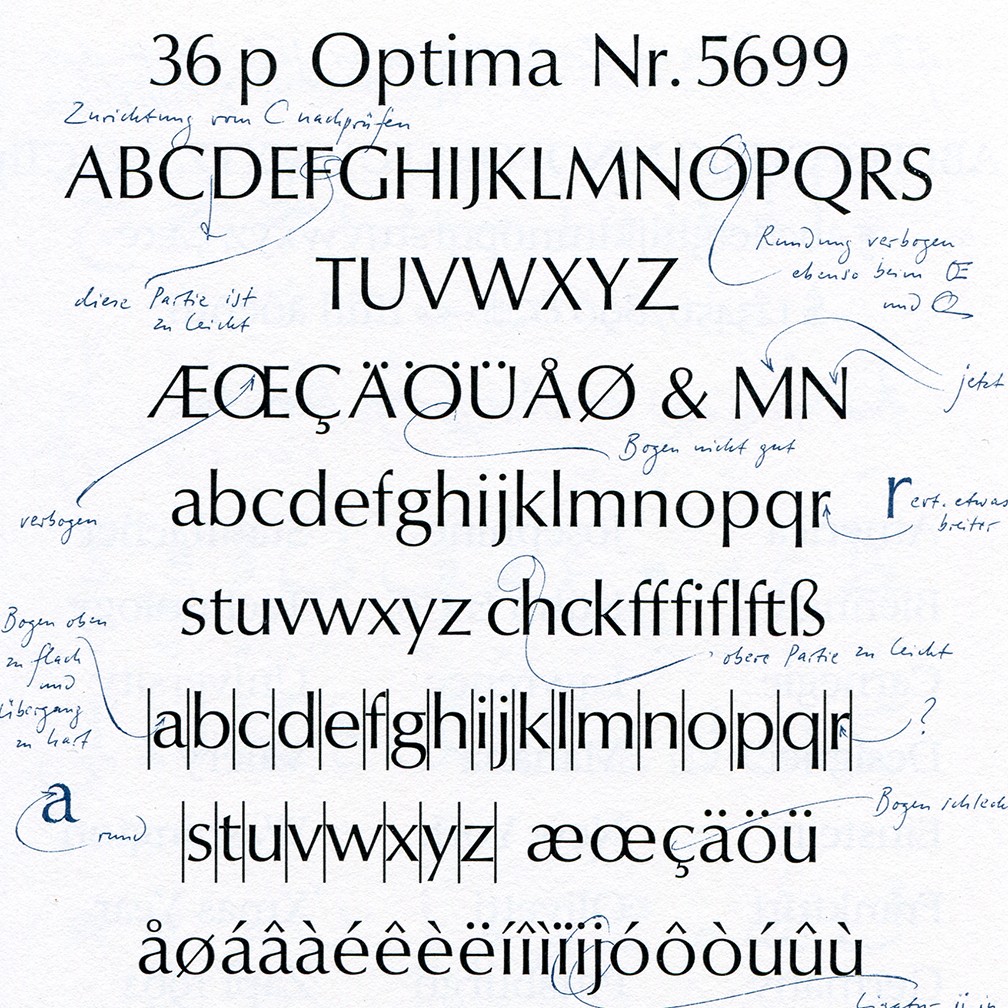 36 p Optima Nr. 5699
Zurichtung vom C nachprüfen
ABCDEFGHIJKLMNOPQRS
Rundung verbogen
ebenso beim Œ
und Q
diese Partie ist
zu leicht
TUVWXYZ
ÆŒÇÄÖÜÅØ & MN
jetzt
Bogen nicht gut
verbogen
abcdefghijklmnopqr
r evt. etwas
breiter
stuvwxyz chckfffiflftß
obere Partie zu leicht
Bogen oben
zu flach
und
Übergang
zu hart
abcdefghijklmnopqr
?
a
rund
stuvwxyz æœçäöü
Bogen schlech
åøáâàéêèëíîìïijóôòúûù